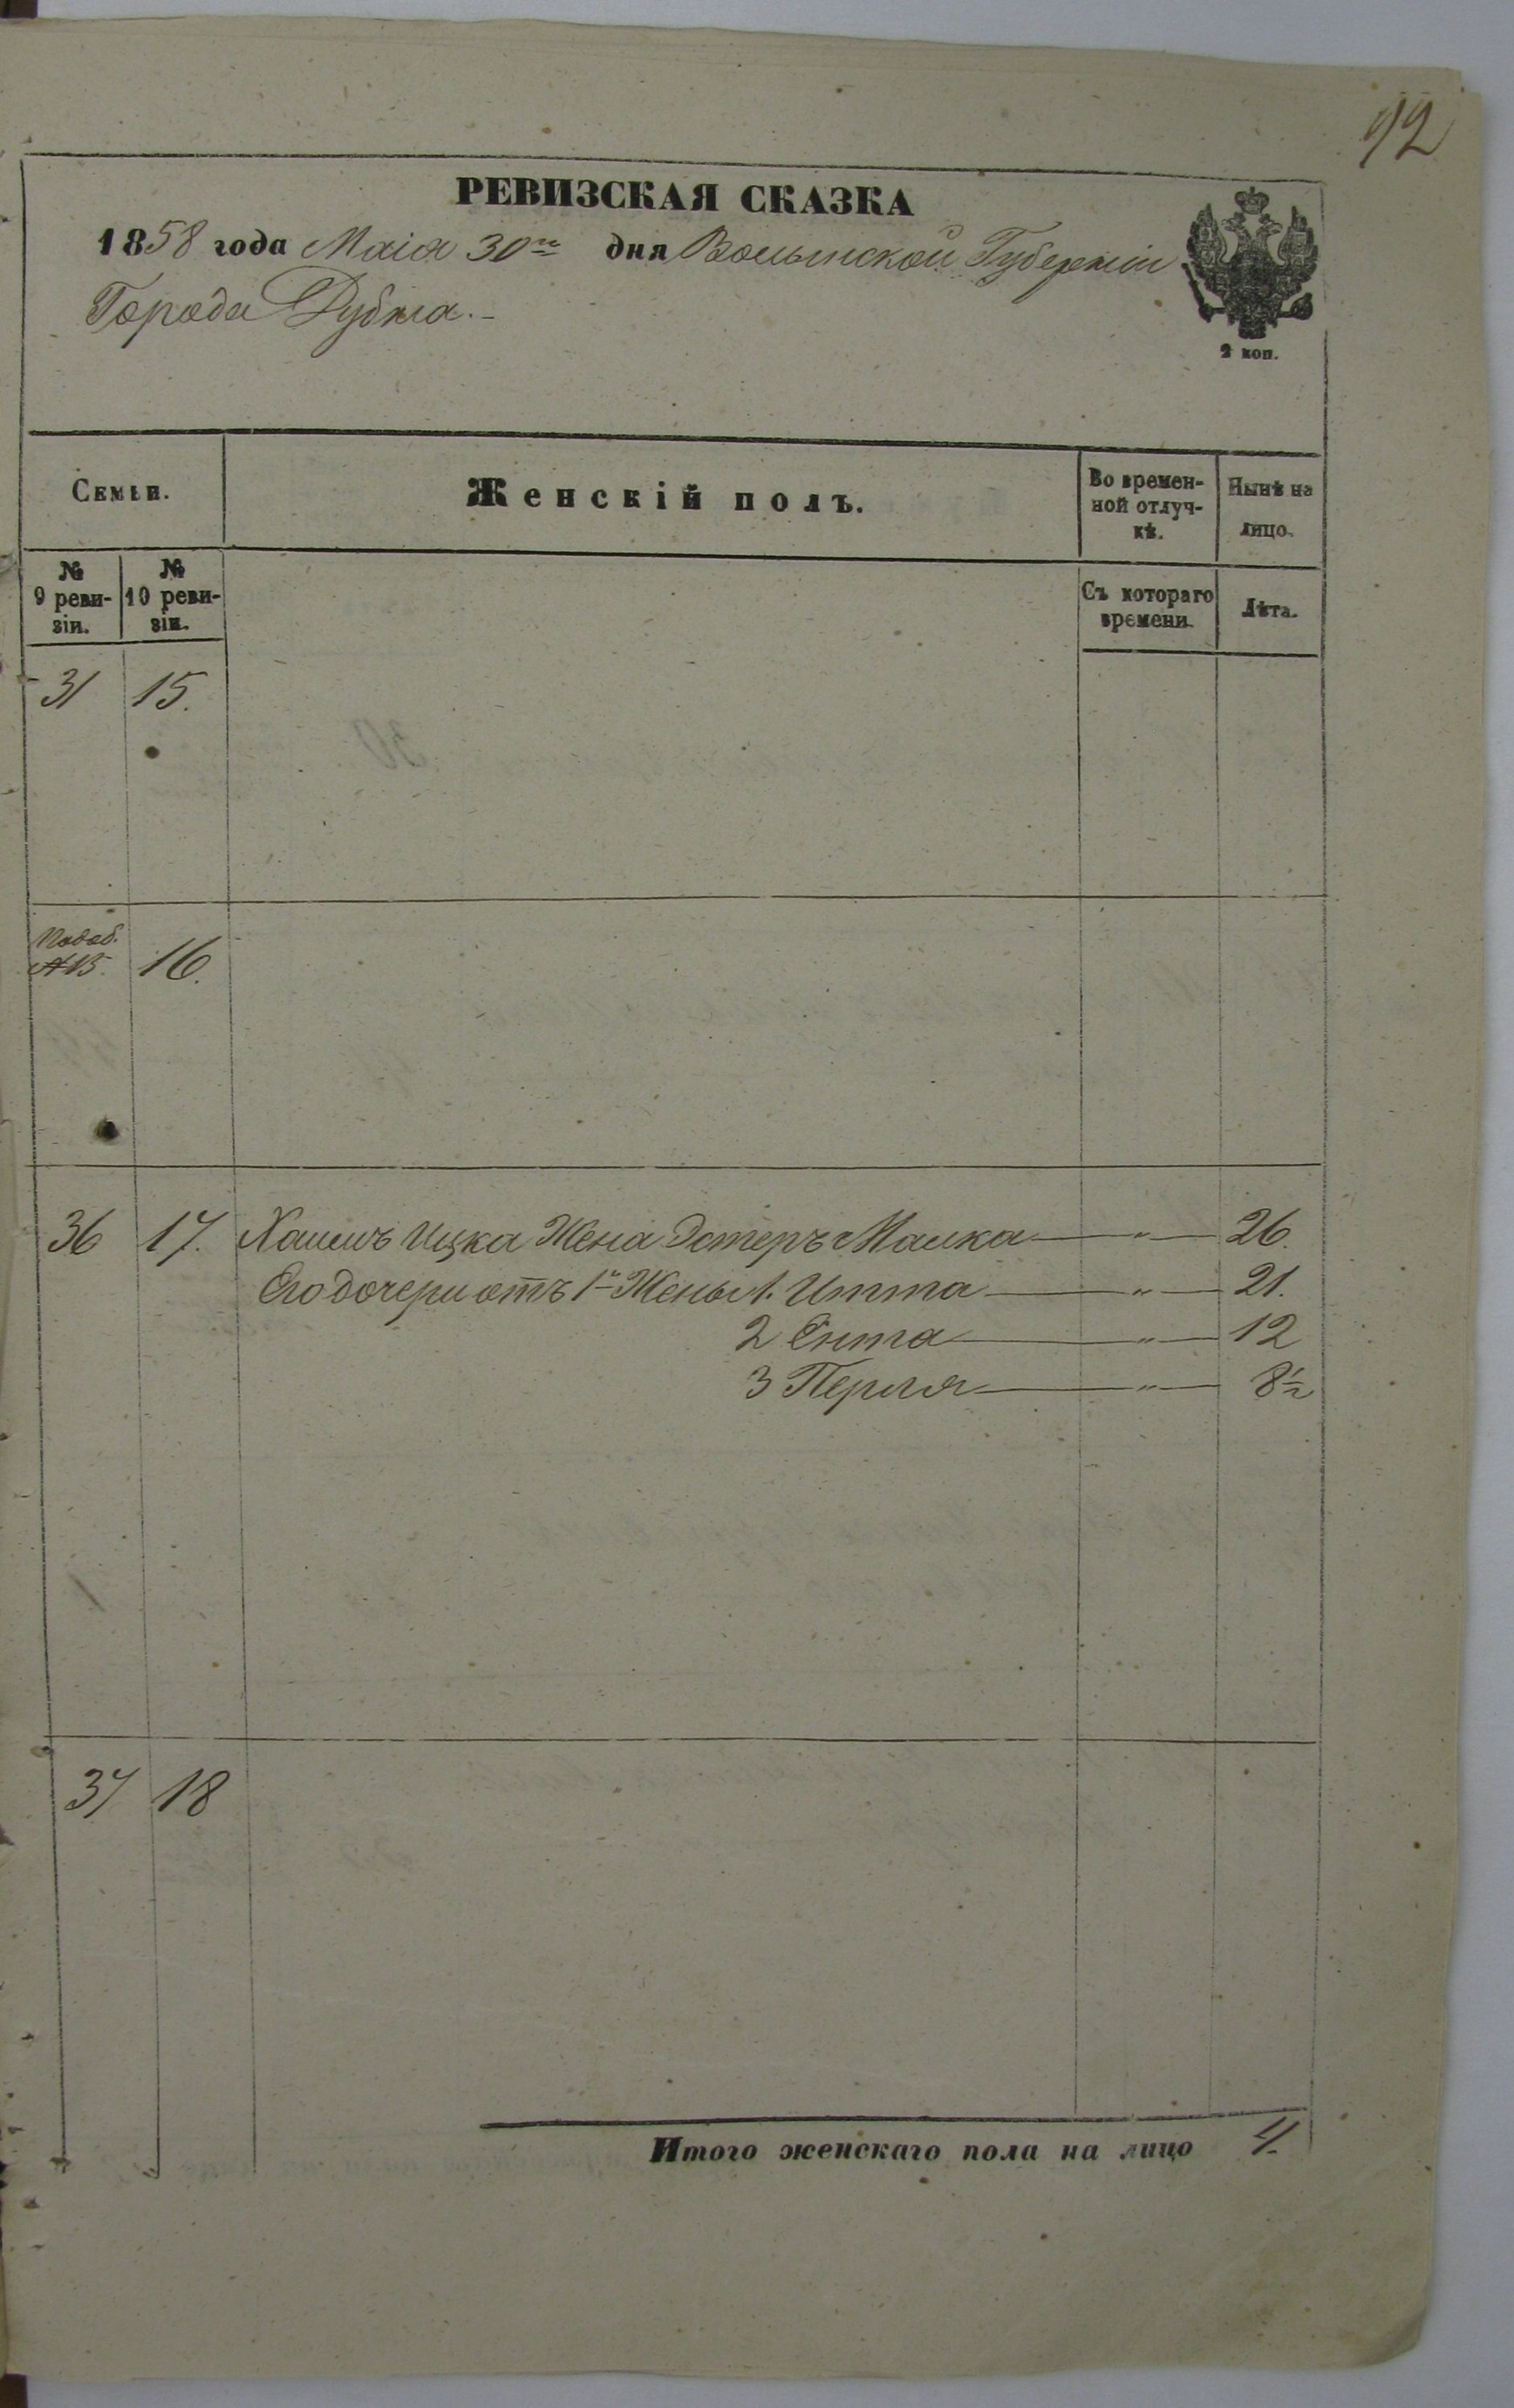 92
РЕВИЗСКАЯ СКАЗКА
1858 года Маія 30го дня Волынской Губерніи
Города Дубна.-
2 коп.
Семьи.
Женскій полъ.
Во времен-
ной отлуч-
кѣ.
Нынѣ на
лицо.
№
9 реви-
зіи.
№
10 реви-
зіи.
Съ котораго
времени.
Лѣта.
31 15.
16.
36 17. Ицка Жена Эстеръ Малка — " — 26.
Его дочери отъ 1й Жены 1. Итта — " — 21.
2 Ента — " — 12
3 Перля — " — 8½
37 18
Итого женскаго пола на лицо 4.